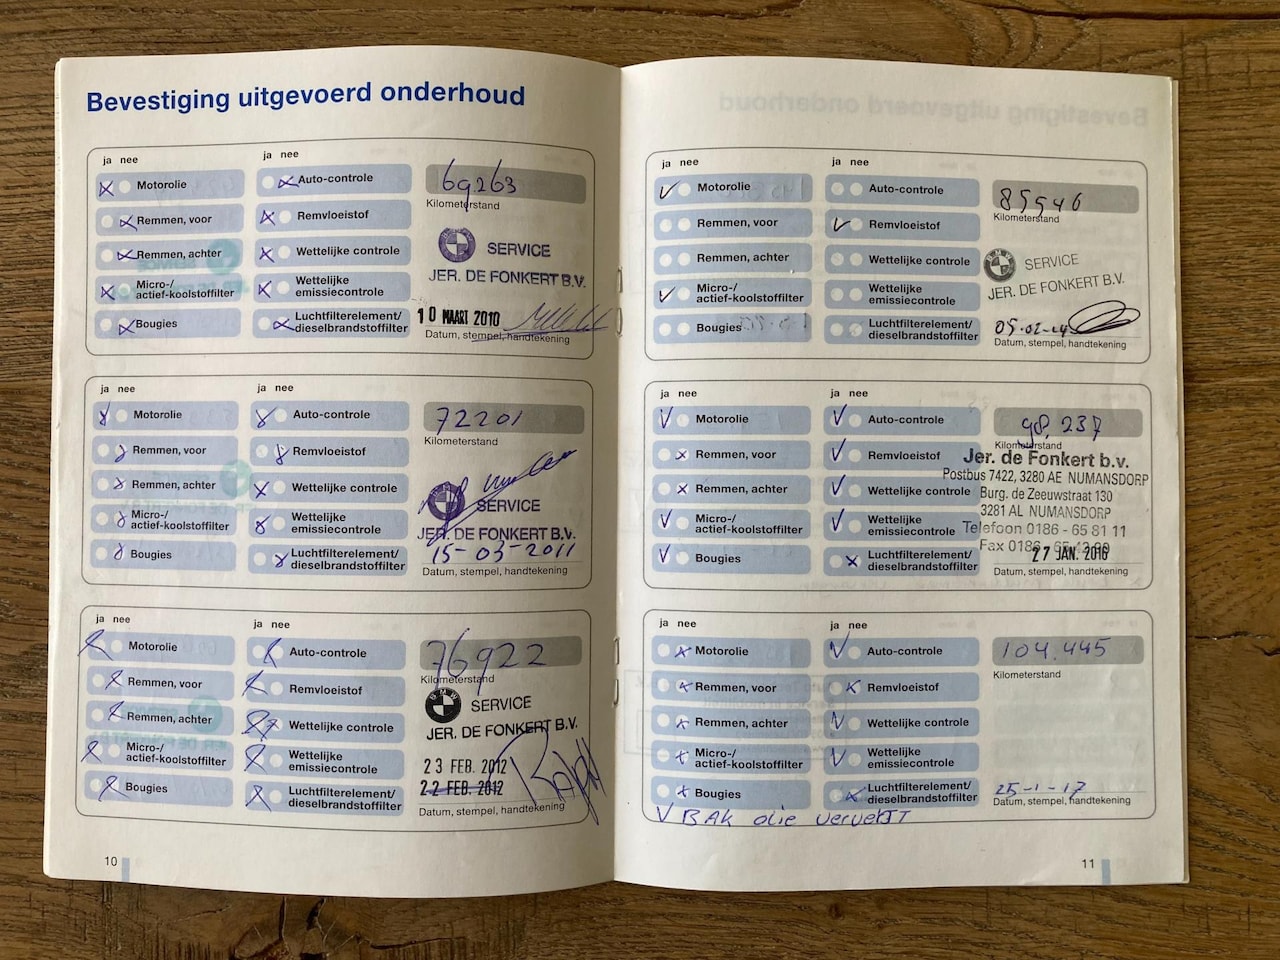 Bevestiging uitgevoerd onderhoud
ja nee
ja nee
Motorolie
Auto-controle
69263
Remmen, voor
Remvloeistof
Kilometerstand
Remmen, achter
Wettelijke controle
SERVICE
JER. DE FONKERT B.V.
Micro-/
actief-koolstoffilter
Wettelijke
emissiecontrole
10 MAART 2010
Bougies
Luchtfilterelement/
dieselbrandstoffilter
Datum, stempel, handtekening
ja nee
ja nee
Motorolie
Auto-controle
72201
Remmen, voor
Remvloeistof
Kilometerstand
Remmen, achter
Wettelijke controle
SERVICE
JER. DE FONKERT B.V.
Micro-/
actief-koolstoffilter
Wettelijke
emissiecontrole
15-03-2011
Bougies
Luchtfilterelement/
dieselbrandstoffilter
Datum, stempel, handtekening
ja nee
ja nee
Motorolie
Auto-controle
76922
Remmen, voor
Remvloeistof
Kilometerstand
BMW
Remmen, achter
Wettelijke controle
SERVICE
JER. DE FONKERT B.V.
Micro-/
actief-koolstoffilter
Wettelijke
emissiecontrole
23 FEB. 2012
22 FEB. 2012
Bougies
Luchtfilterelement/
dieselbrandstoffilter
Datum, stempel, handtekening
10
ja nee
ja nee
Motorolie
Auto-controle
85546
Remmen, voor
Remvloeistof
Kilometerstand
Remmen, achter
Wettelijke controle
SERVICE
JER. DE FONKERT B.V.
Micro-/
actief-koolstoffilter
Wettelijke
emissiecontrole
05-02-14
Bougies
Luchtfilterelement/
dieselbrandstoffilter
Datum, stempel, handtekening
ja nee
ja nee
Motorolie
Auto-controle
98.237
Remmen, voor
Remvloeistof
Kilometerstand
Jer. de Fonkert b.v.
Postbus 7422, 3280 AE NUMANSDORP
Burg. de Zeeuwstraat 130
3281 AL NUMANSDORP
Telefoon 0186 - 65 81 11
Remmen, achter
Wettelijke controle
Micro-/
actief-koolstoffilter
Wettelijke
emissiecontrole
27 JAN.
Bougies
Luchtfilterelement/
dieselbrandstoffilter
Datum, stempel, handtekening
ja nee
ja nee
Motorolie
Auto-controle
104.445
Remmen, voor
Remvloeistof
Kilometerstand
Remmen, achter
Wettelijke controle
Micro-/
actief-koolstoffilter
Wettelijke
emissiecontrole
Bougies
Luchtfilterelement/
dieselbrandstoffilter
25-1-17
Datum, stempel, handtekening
V BAK olie ververst
11